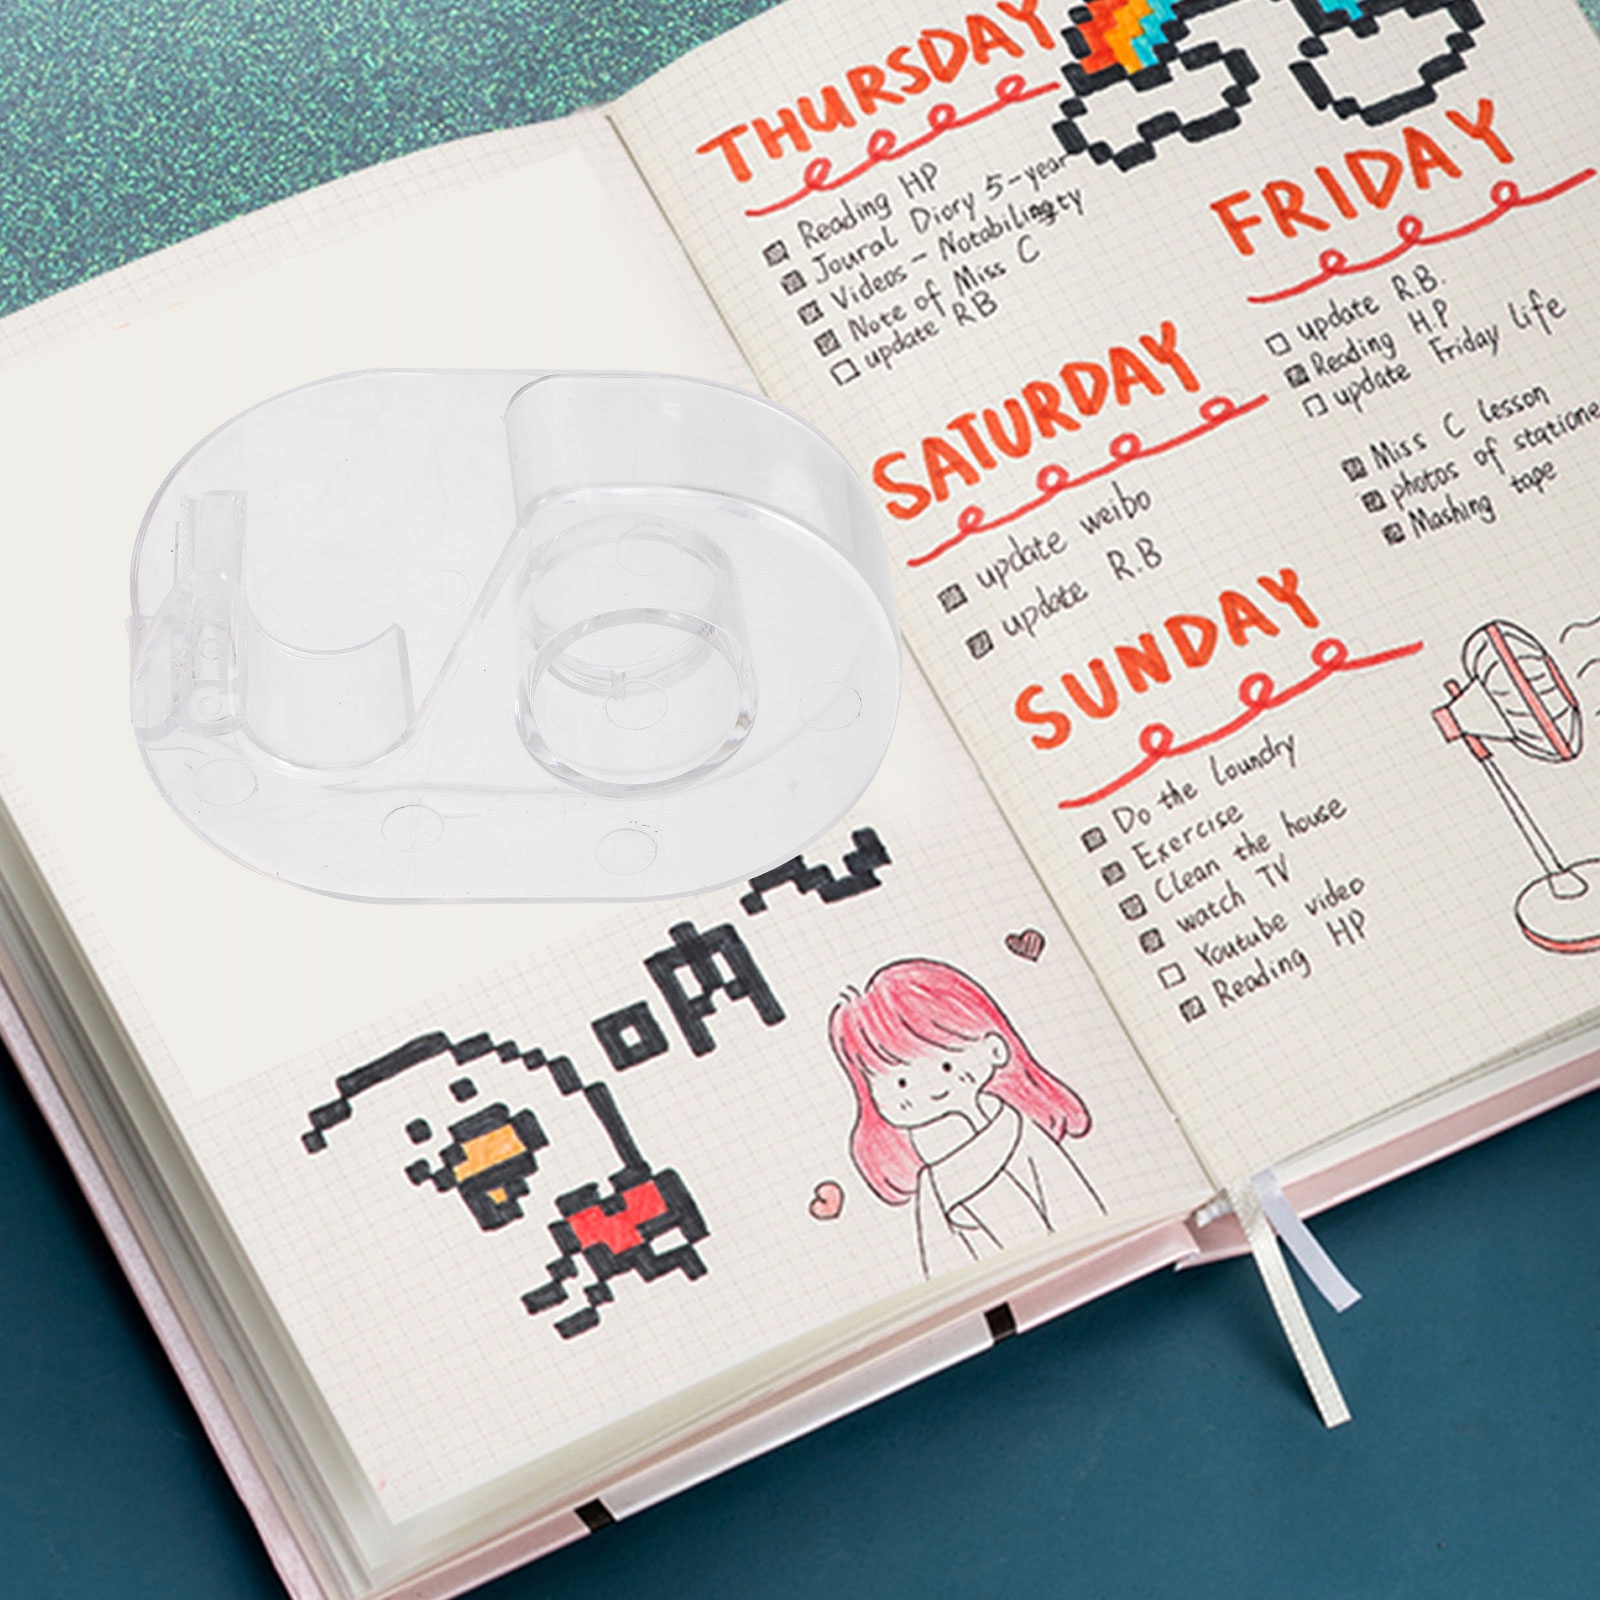 THURSDAY
Reading HP
Joural Diory 5-year
Videos - Notabilingty
Note of Miss C
update RB
FRIDAY
update R.B.
Reading H.P
update Friday Life
Miss C Lesson
photos of statione
Mashing tape
SATURDAY
update weibo
update R.B
SUNDAY
Do the Loundry
Exercise
Clean the house
watch TV
Youtube video
Reading HP